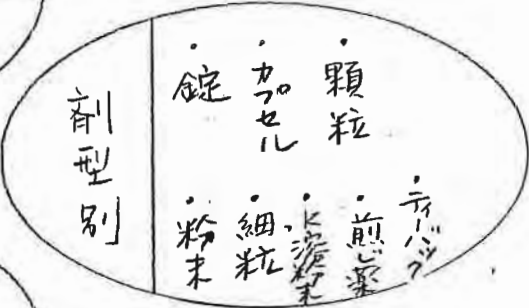 剤型別
・錠
・カプセル
・顆粒
・粉末
・細粒
・煎じ薬
・ティーバッグ